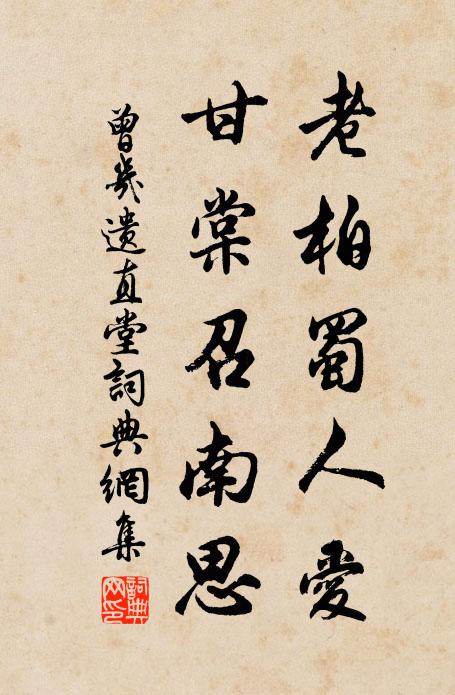 老柏蜀人愛
甘棠召南思
曾幾遺直堂詞典網集
詞典網印